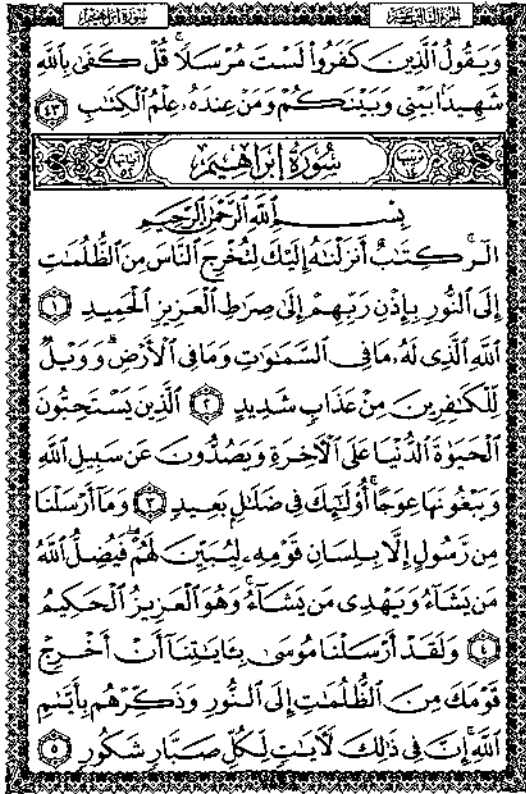 سورة إبراهيم الجزء الثالث عشر
وَيَقُولُ ٱلَّذِينَ كَفَرُوا۟ لَسْتَ مُرْسَلًا ۚ قُلْ كَفَىٰ بِٱللَّهِ
شَهِيدًۢا بَيْنِى وَبَيْنَكُمْ وَمَنْ عِندَهُۥ عِلْمُ ٱلْكِتَـٰبِ ٤٣
سُورَةُ إِبْرَاهِيمَ
بِسْمِ ٱللَّهِ ٱلرَّحْمَـٰنِ ٱلرَّحِيمِ
الٓر ۚ كِتَـٰبٌ أَنزَلْنَـٰهُ إِلَيْكَ لِتُخْرِجَ ٱلنَّاسَ مِنَ ٱلظُّلُمَـٰتِ
إِلَى ٱلنُّورِ بِإِذْنِ رَبِّهِمْ إِلَىٰ صِرَٰطِ ٱلْعَزِيزِ ٱلْحَمِيدِ ١
ٱللَّهِ ٱلَّذِى لَهُۥ مَا فِى ٱلسَّمَـٰوَٰتِ وَمَا فِى ٱلْأَرْضِ ۗ وَوَيْلٌ
لِّلْكَـٰفِرِينَ مِنْ عَذَابٍ شَدِيدٍ ٢ ٱلَّذِينَ يَسْتَحِبُّونَ
ٱلْحَيَوٰةَ ٱلدُّنْيَا عَلَى ٱلْـَٔاخِرَةِ وَيَصُدُّونَ عَن سَبِيلِ ٱللَّهِ
وَيَبْغُونَهَا عِوَجًا ۚ أُو۟لَـٰٓئِكَ فِى ضَلَـٰلٍۭ بَعِيدٍ ٣ وَمَآ أَرْسَلْنَا
مِن رَّسُولٍ إِلَّا بِلِسَانِ قَوْمِهِۦ لِيُبَيِّنَ لَهُمْ ۖ فَيُضِلُّ ٱللَّهُ
مَن يَشَآءُ وَيَهْدِى مَن يَشَآءُ ۚ وَهُوَ ٱلْعَزِيزُ ٱلْحَكِيمُ
٤ وَلَقَدْ أَرْسَلْنَا مُوسَىٰ بِـَٔايَـٰتِنَآ أَنْ أَخْرِجْ
قَوْمَكَ مِنَ ٱلظُّلُمَـٰتِ إِلَى ٱلنُّورِ وَذَكِّرْهُم بِأَيَّىٰمِ
ٱللَّهِ ۚ إِنَّ فِى ذَٰلِكَ لَـَٔايَـٰتٍ لِّكُلِّ صَبَّارٍ شَكُورٍ ٥